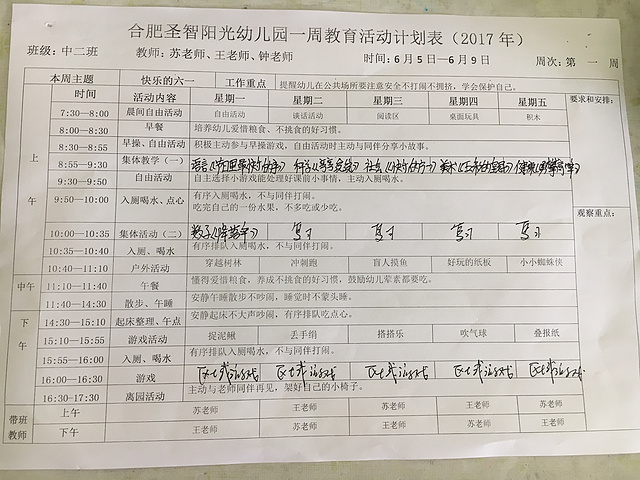 合肥圣智阳光幼儿园一周教育活动计划表（2017 年）
班级：中二班 教师：苏老师、王老师、钟老师 时间：6 月 5 日—6 月 9 日 周次：第 一 周
本周主题 快乐的六一 工作重点 提醒幼儿在公共场所要注意安全不打闹不拥挤，学会保护自己。
时间 活动内容 星期一 星期二 星期三 星期四 星期五 要求和安排：
上午
7:30—8:00 晨间自由活动 自由活动 谈话活动 阅读区 桌面玩具 积木
8:00—8:30 早餐 培养幼儿爱惜粮食、不挑食的好习惯。
8:30—8:55 早操、自由活动 积极主动参与早操游戏，自由活动时主动与同伴分享小故事。
8:55—9:30 集体教学（一） 语言
9:30—9:50 自由活动 自主选择小游戏能处理好课前小事情，主动入厕喝水。
9:50—10:00 入厕喝水、点心 有序入厕喝水，不与同伴打闹。
吃完自己的一份水果，不多吃或少吃。
观察重点：
10:00—10:35 集体活动（二） 复习 复习 复习 复习
10:35—10:40 入厕、喝水 有序排队入厕喝水，不与同伴打闹。
10:40—11:10 户外活动 穿越树林 冲刺跑 盲人摸鱼 好玩的纸板 小小蜘蛛侠
中午
11:10—11:40 午餐 懂得爱惜粮食，养成不挑食的好习惯，鼓励幼儿荤素都要吃。
11:40—14:30 散步、午睡 安静午睡散步不吵闹，睡觉时不蒙头睡。
下午
14:30—15:10 起床整理、午点 安静起床不大声吵闹，有序排队吃点心。
15:10—15:55 游戏活动 捉泥鳅 丢手绢 搭搭乐 吹气球 叠报纸
15:55—16:00 入厕、喝水 有序排队入厕喝水，不与同伴打闹。
16:00—16:30 游戏 区域游戏 区域游戏 区域游戏 区域游戏 区域游戏
16:30-17:30 离园活动 主动与老师同伴再见，架好自己的小椅子。
带班教师 上午 苏老师 王老师 苏老师 王老师 苏老师
下午 王老师 苏老师 王老师 苏老师 王老师